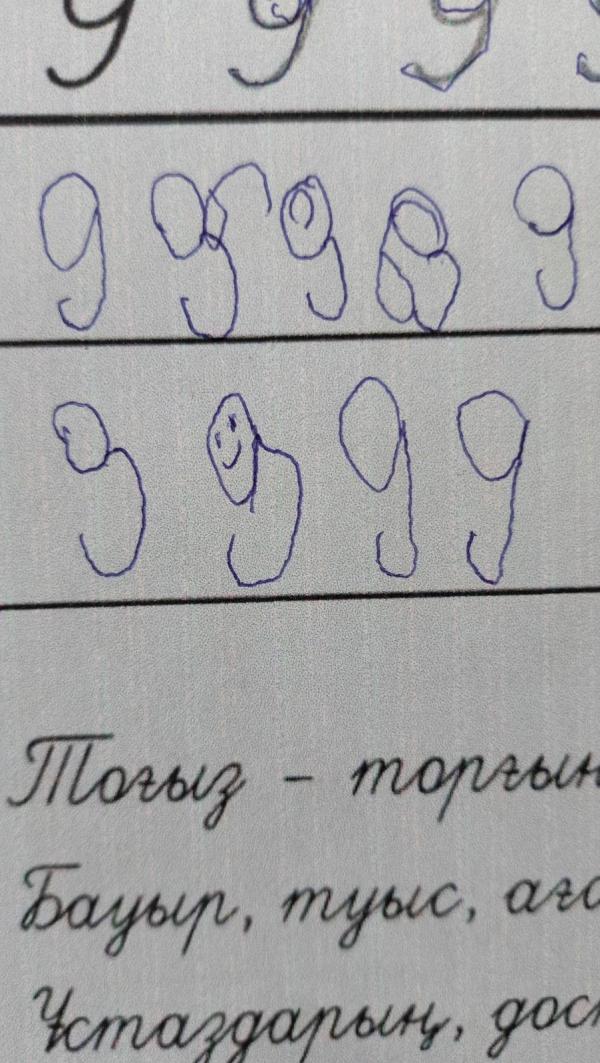 9 9 9
9 9 9 9 9
9 9 9 9
Тоғыз – торғын
Бауыр, туыс, аға
Ұстаздарың, дос